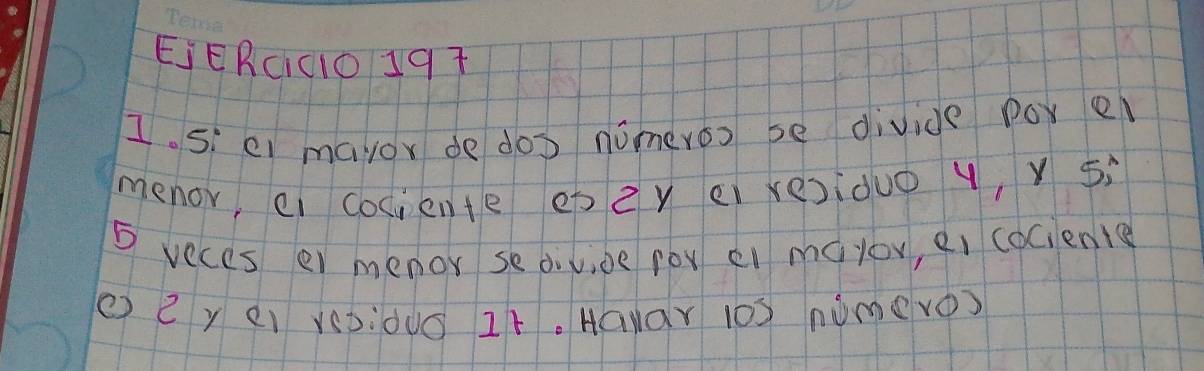 Tema
EJERCICIO 197
1. Si el mayor de dos números se divide por el
menor, el cociente es 2 y el residuo 4, y si
5 veces el menor se divide por el mayor, el cociente
es 2 y el residuo 17. Hallar los números